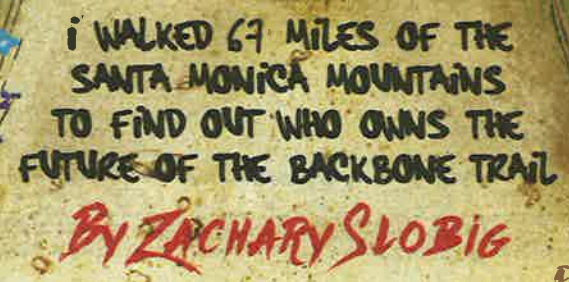 i WALKED 67 MiLES OF THE
SANTA MONiCA MOUNTAiNS
TO FiND OUT WHO OWNS THE
FUTURE OF THE BACKBONE TRAiL
By ZACHARy SLOBiG